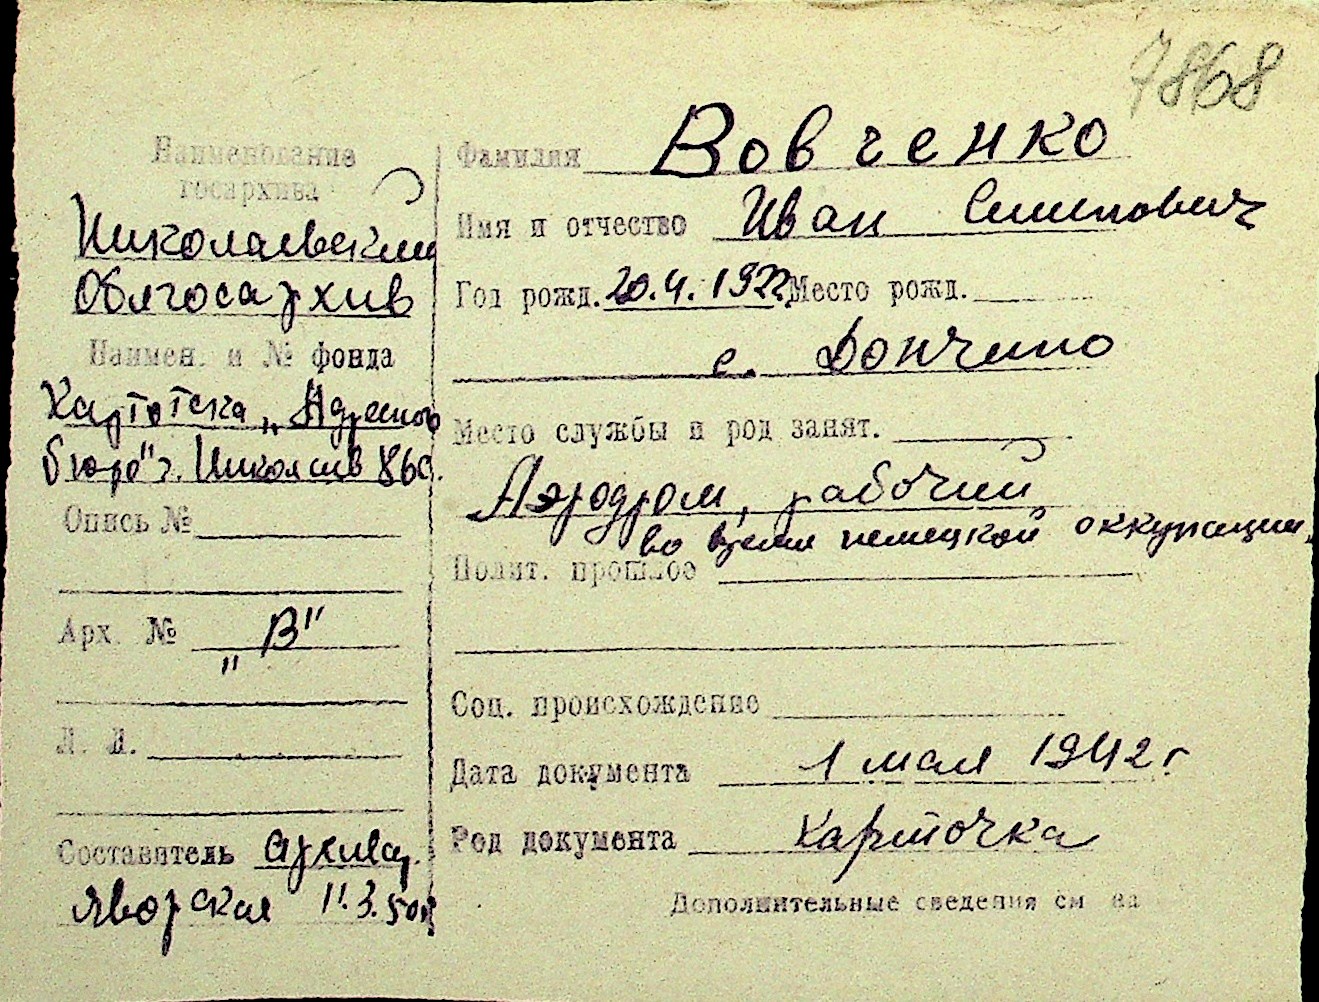 7868
Наименование
госархива
Николаевский
Облгосархив
Наимен. и № фонда
Картотека „Адресного
бюро" г. Николаев
Опись №
Арх. №
„В"
Л. Л.
Составитель архивар.
Яворская 11.3.50г
Фамилия Вовченко
Имя и отчество Иван
Год рожд. 20.4.1922 Место рожд.
с. Дончино
Место службы и род занят.
Аэродром, рабочий
во время немецкой оккупации.
Полит. прошлое
Соц. происхождение
Дата документа 1 мая 1942 г
Род документа карточка
Дополнительные сведения см на